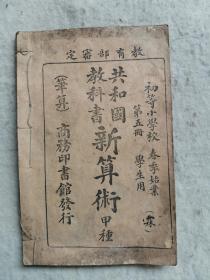 教育部審定
初等小學校 春季始業
第五冊 學生用
共和國
教科書
新算術 甲種
（筆算）
商務印書館發行